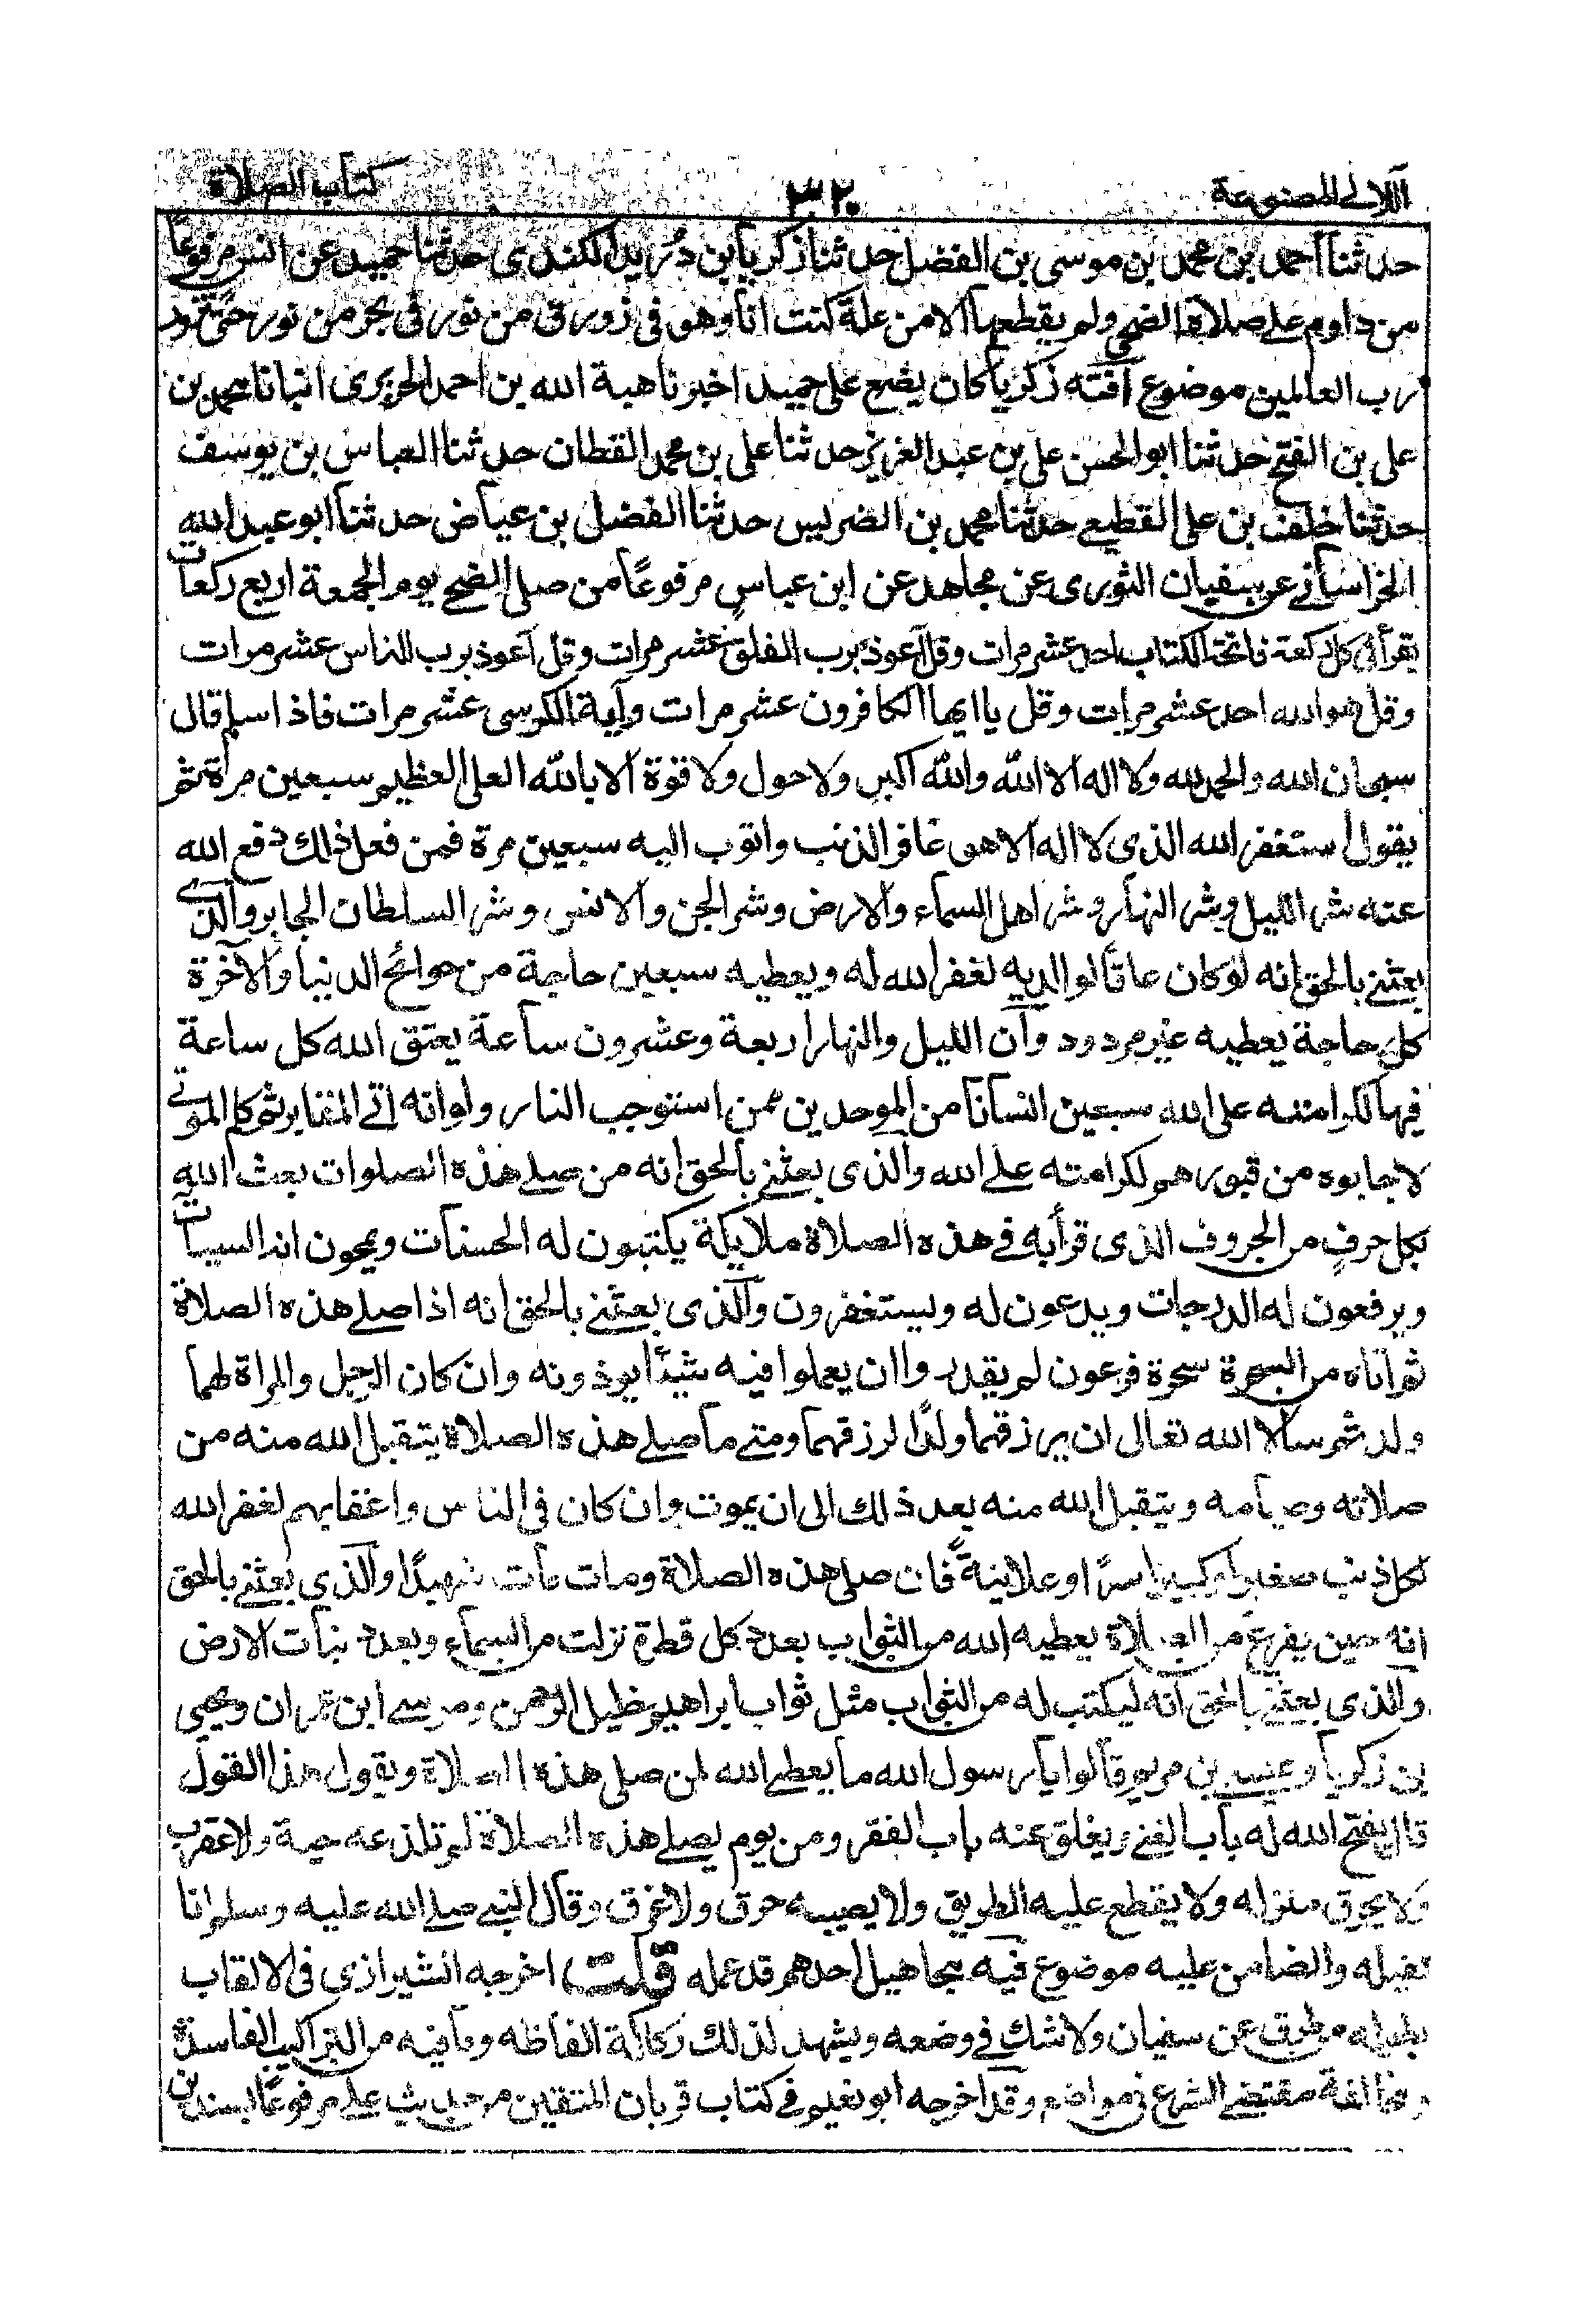 اللآلي المصنوعة ٣٢٠ كتاب الصلاة
حدثنا احمد بن محمد بن موسى بن الفضل حدثنا زكريا بن دُرَيد الكندى حدثنا حميد عن انس مرفوعاً
من داوم على صلاة الضحى ولم يقطعها الا من علة كنت انا وهو فى زورق من نور فى بحر من نور حتى نزور
رب العالمين موضوع آفته زكريا كان يضع على حميد اخبرنا هبة الله بن احمد الحريرى انبانا محمد بن
على بن الفتح حدثنا ابو الحسن على بن عبد العزيز حدثنا على بن محمد القطان حدثنا العباس بن يوسف
حدثنا خلف بن على القطيعى حدثنا محمد بن الضريس حدثنا الفضل بن عياض حدثنا ابو عبد الله
الخراسانى عن سفيان الثورى عن مجاهد عن ابن عباسٍ مرفوعًا من صلى الضحى يوم الجمعة اربع ركعات
يقرأ فى كل ركعة فاتحة الكتاب احد عشر مرات وقل اعوذ برب الفلق عشر مرات وقل اعوذ برب الناس عشر مرات
وقل هو الله احد عشر مرات وقل يا ايها الكافرون عشر مرات وآية الكرسى عشر مرات فاذا سلم قال
سبحان الله والحمد لله ولا اله الا الله والله اكبر ولا حول ولا قوة الا بالله العلى العظيم سبعين مرة ثم
يقول استغفر الله الذى لا اله الا هو غافر الذنب واتوب اليه سبعين مرة فمن فعل ذلك دفع الله
عنه شر الليل وشر النهار وشر اهل السماء والارض وشر الجن والانس وشر السلطان الجابر والذى
بعثنى بالحق انه لو كان عاقا لوالديه لغفر الله له ويعطيه سبعين حاجة من حوائج الدنيا والآخرة
كل حاجة يعطيه غير مردود وان الليل والنهار اربعة وعشرون ساعة يعتق الله كل ساعة
فيها لكرامته على الله سبعين انسانا من الموحدين ممن استوجب النار ولو انه اتى المقابر ثم كلم الموتى
لاجابوه من قبورهم لكرامته على الله والذى بعثنى بالحق انه من صلى هذه الصلوات بعث الله
بكل حرفٍ من الحروف الذى قرأ به فى هذه الصلاة ملايكة يكتبون له الحسنات ويمحون السيات
ويرفعون له الدرجات ويدعون له ويستغفرون والذى بعثنى بالحق انه اذا صلى هذه الصلاة
ثم اتاه من السحرة سحرة فرعون لم يقدروا ان يعملوا فيه شيئًا يوذونه وان كان الرجل والمراة لهما
ولد ثم سالا الله تعالى ان يرزقهما ولدًا لرزقهما ومتى ما صلى هذه الصلاة يتقبل الله منه من
صلاته وصيامه ويتقبل الله منه بعد ذلك الى ان يموت وان كان فى الناس لغفر الله
لكل ذنب صغيرا وكبيرا سرًا او علانيةً فان صلى هذه الصلاة ومات مات شهيدًا والذى بعثنى بالحق
انه حين يفرغ من الصلاة يعطيه الله من الثواب بعدد كل قطرة نزلت من السماء وبعدد نبات الارض
والذى بعثنى بالحق انه ليكتب له من الثواب مثل ثواب ابراهيم خليل الرحمن وموسى ابن عمران ويحيى
بن زكريا وعيسى بن مريم قالوا يا رسول الله ما يعطى الله لمن صلى هذه الصلاة ويقول هذا القول
قال يفتح الله له باب الغنى ويغلق عنه باب الفقر ومن يوم يصلى هذه الصلاة لم تلذعه حية ولا عقرب
ولا يحرق منزله ولا يقطع عليه الطريق ولا يصيبه حرق ولا غرق وقال النبى صلى الله عليه وسلم انا
كفيله والضامن عليه موضوع فيه مجاهيل احدهم قد عمله قلت اخرجه الشيرازى فى الالقاب
بطوله من طريق عن سفيان ولا شك فى وضعه ويشهد لذلك ركاكة الفاظه وما فيه من التراكيب الفاسدة
ومخالفة مقتضى الشرع فى مواضع وقد اخرجه ابو نعيم فى كتاب قربان المتقين من حديث على مرفوعًا بسندين